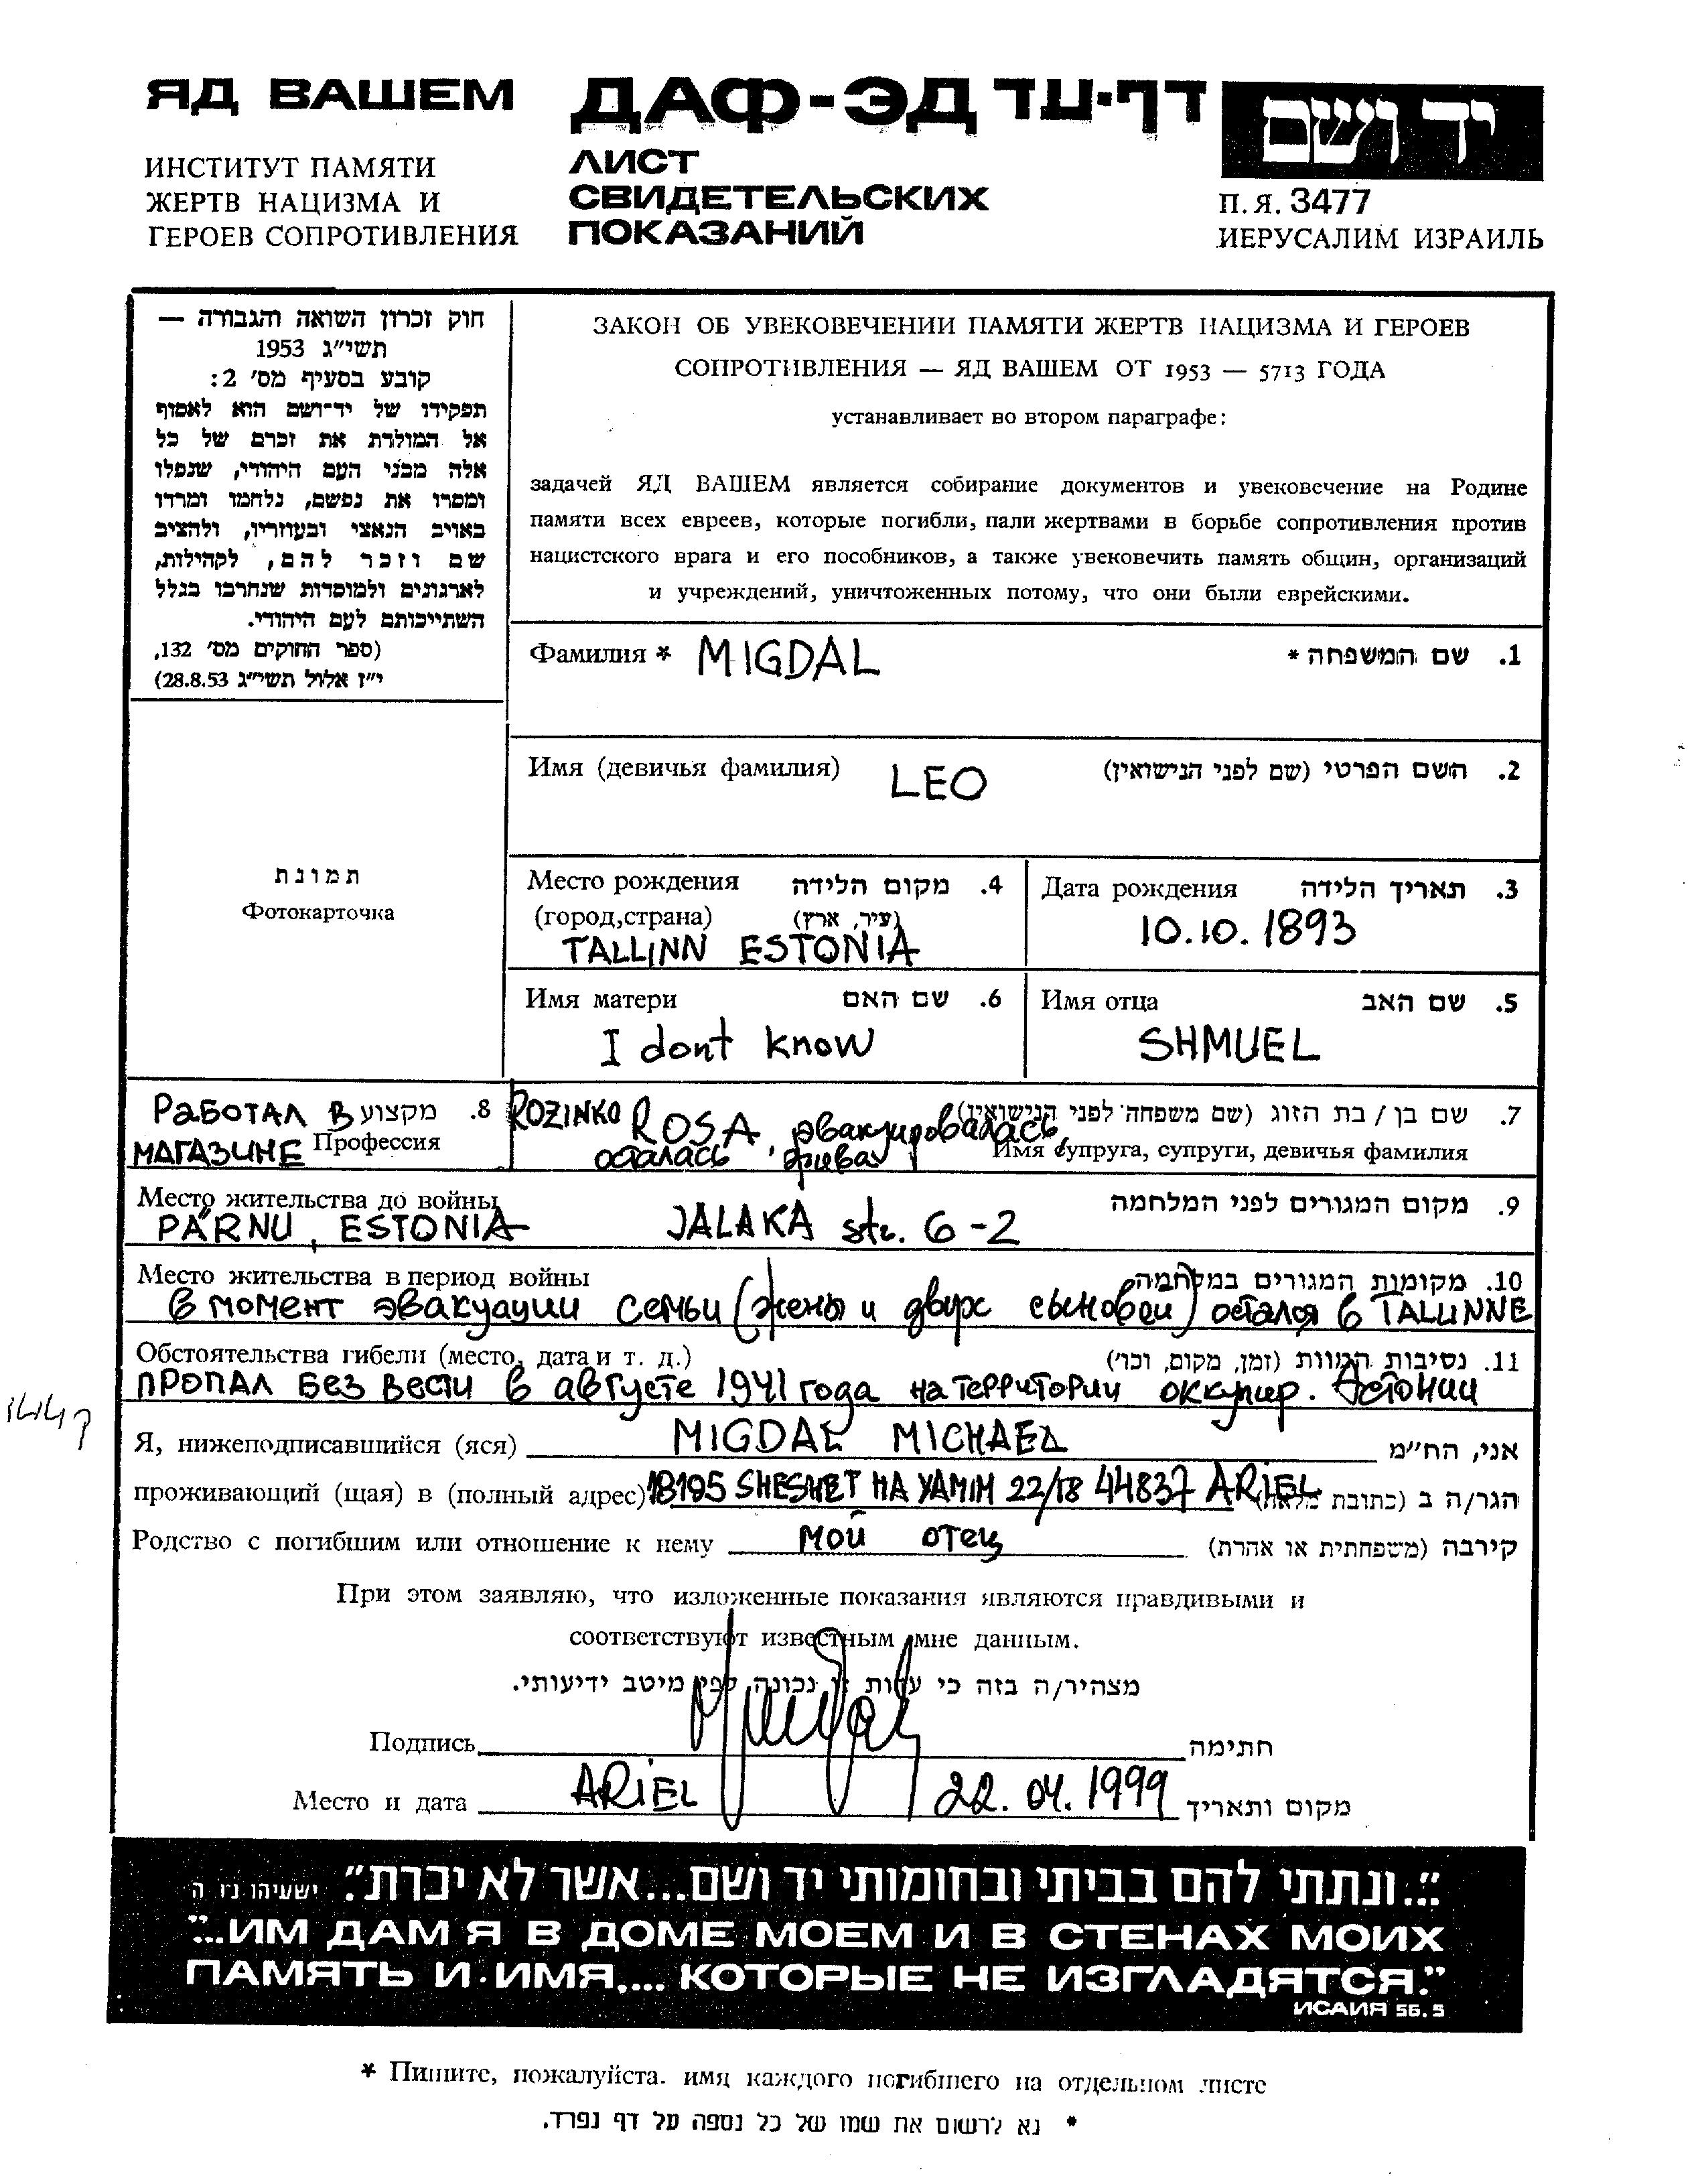 ЯД ВАШЕМ
ИНСТИТУТ ПАМЯТИ
ЖЕРТВ НАЦИЗМА И
ГЕРОЕВ СОПРОТИВЛЕНИЯ
ДАФ-ЭД דף-עד
ЛИСТ
СВИДЕТЕЛЬСКИХ
ПОКАЗАНИЙ
יד ושם
П.Я. 3477
ИЕРУСАЛИМ ИЗРАИЛЬ
חוק זכרון השואה והגבורה —
תשי"ג 1953
קובע בסעיף מס' 2:
תפקידו של יד־ושם הוא לאסוף
אל המולדת את זכרם של כל
אלה מבני העם היהודי, שנפלו
ומסרו את נפשם, נלחמו ומרדו
באויב הנאצי ובעוזריו, ולהציב
שם וזכר להם, לקהילות,
לארגונים ולמוסדות שנחרבו בגלל
השתייכותם לעם היהודי.
(ספר החוקים מס' 132,
י"ז אלול תשי"ג 28.8.53)
ЗАКОН ОБ УВЕКОВЕЧЕНИИ ПАМЯТИ ЖЕРТВ НАЦИЗМА И ГЕРОЕВ
СОПРОТИВЛЕНИЯ — ЯД ВАШЕМ ОТ 1953 — 5713 ГОДА
устанавливает во втором параграфе:
задачей ЯД ВАШЕМ является собирание документов и увековечение на Родине
памяти всех евреев, которые погибли, пали жертвами в борьбе сопротивления против
нацистского врага и его пособников, а также увековечить память общин, организаций
и учреждений, уничтоженных потому, что они были еврейскими.
Фамилия * MIGDAL 1. שם המשפחה *
Имя (девичья фамилия) LEO 2. השם הפרטי (שם לפני הנישואין)
תמונת
Фотокарточка
Место рождения 4. מקום הלידה
(город,страна) (עיר, ארץ)
TALLINN ESTONIA
Дата рождения 3. תאריך הלידה
10.10.1893
Имя матери 6. שם האם
I dont know
Имя отца 5. שם האב
SHMUEL
РАБОТАЛ В 8. מקצוע
МАГАЗИНЕ Профессия
ROZINKO ROSA эвакуировалась, 7. שם בן / בת הזוג (שם משפחה לפני הנישואין)
осталась жива Имя супруга, супруги, девичья фамилия
Место жительства до войны 9. מקום המגורים לפני המלחמה
PÄRNU, ESTONIA JALAKA str. 6-2
Место жительства в период войны 10. מקומות המגורים במלחמה
в момент эвакуации семьи (жены и двух сыновей) остался в TALLINNE
Обстоятельства гибели (место, дата и т. д.) 11. נסיבות המוות (זמן, מקום, וכו')
пропал без вести в августе 1941 года на территории оккупир. Эстонии
Я, нижеподписавшийся (яся) MIGDAL MICHAEL אני, הח"מ
проживающий (щая) в (полный адрес) 18195 SHESHET HA YAMIM 22/18 44837 ARIEL הגר/ה ב (כתובת מלאה)
Родство с погибшим или отношение к нему мой отец קירבה (משפחתית או אחרת)
При этом заявляю, что изложенные показания являются правдивыми и
соответствуют известным мне данным.
מצהיר/ה בזה כי עדות זו נכונה לפי מיטב ידיעותי.
Подпись חתימה
Место и дата ARIEL 22.04.1999 מקום ותאריך
"...ונתתי להם בביתי ובחומותי יד ושם...אשר לא יכרת." ישעיהו נו ה
"...ИМ ДАМ Я В ДОМЕ МОЕМ И В СТЕНАХ МОИХ
ПАМЯТЬ И ИМЯ,... КОТОРЫЕ НЕ ИЗГЛАДЯТСЯ."
ИСАИЯ 56.5
* Пишите, пожалуйста. имя каждого погибшего на отдельном листе
* נא לרשום את שמו של כל נספה על דף נפרד.